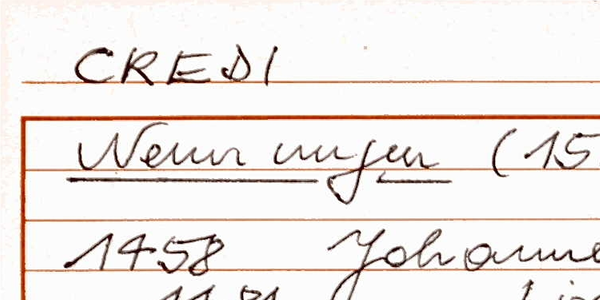 CREDI
Nennungen (15
1458 Johanne